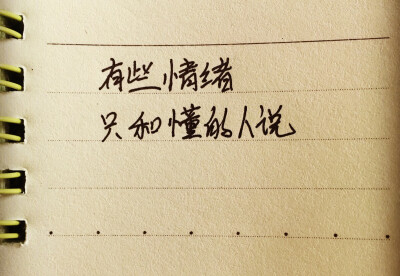 有些情绪
只和懂的人说